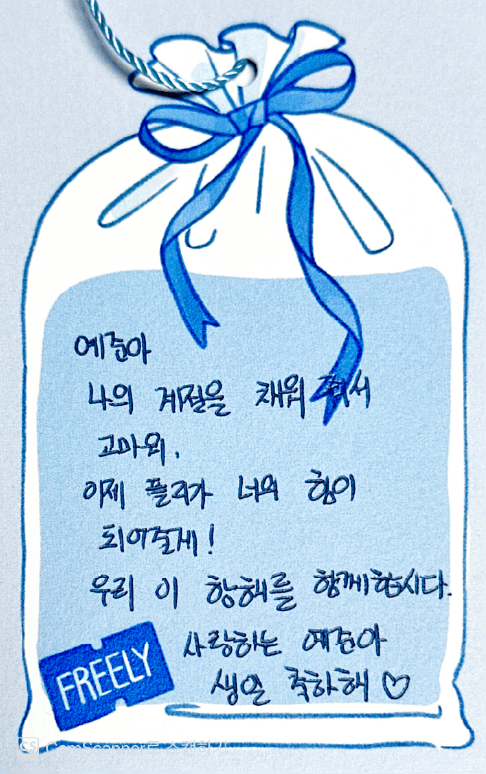 예준아
나의 계절을 채워 줘서
고마워.
이제 플리가 너의 힘이
되어줄게!
우리 이 항해를 함께합시다.
사랑하는 예준아
생일 축하해 ♡
FREELY
CS CamScanner로 스캔하기